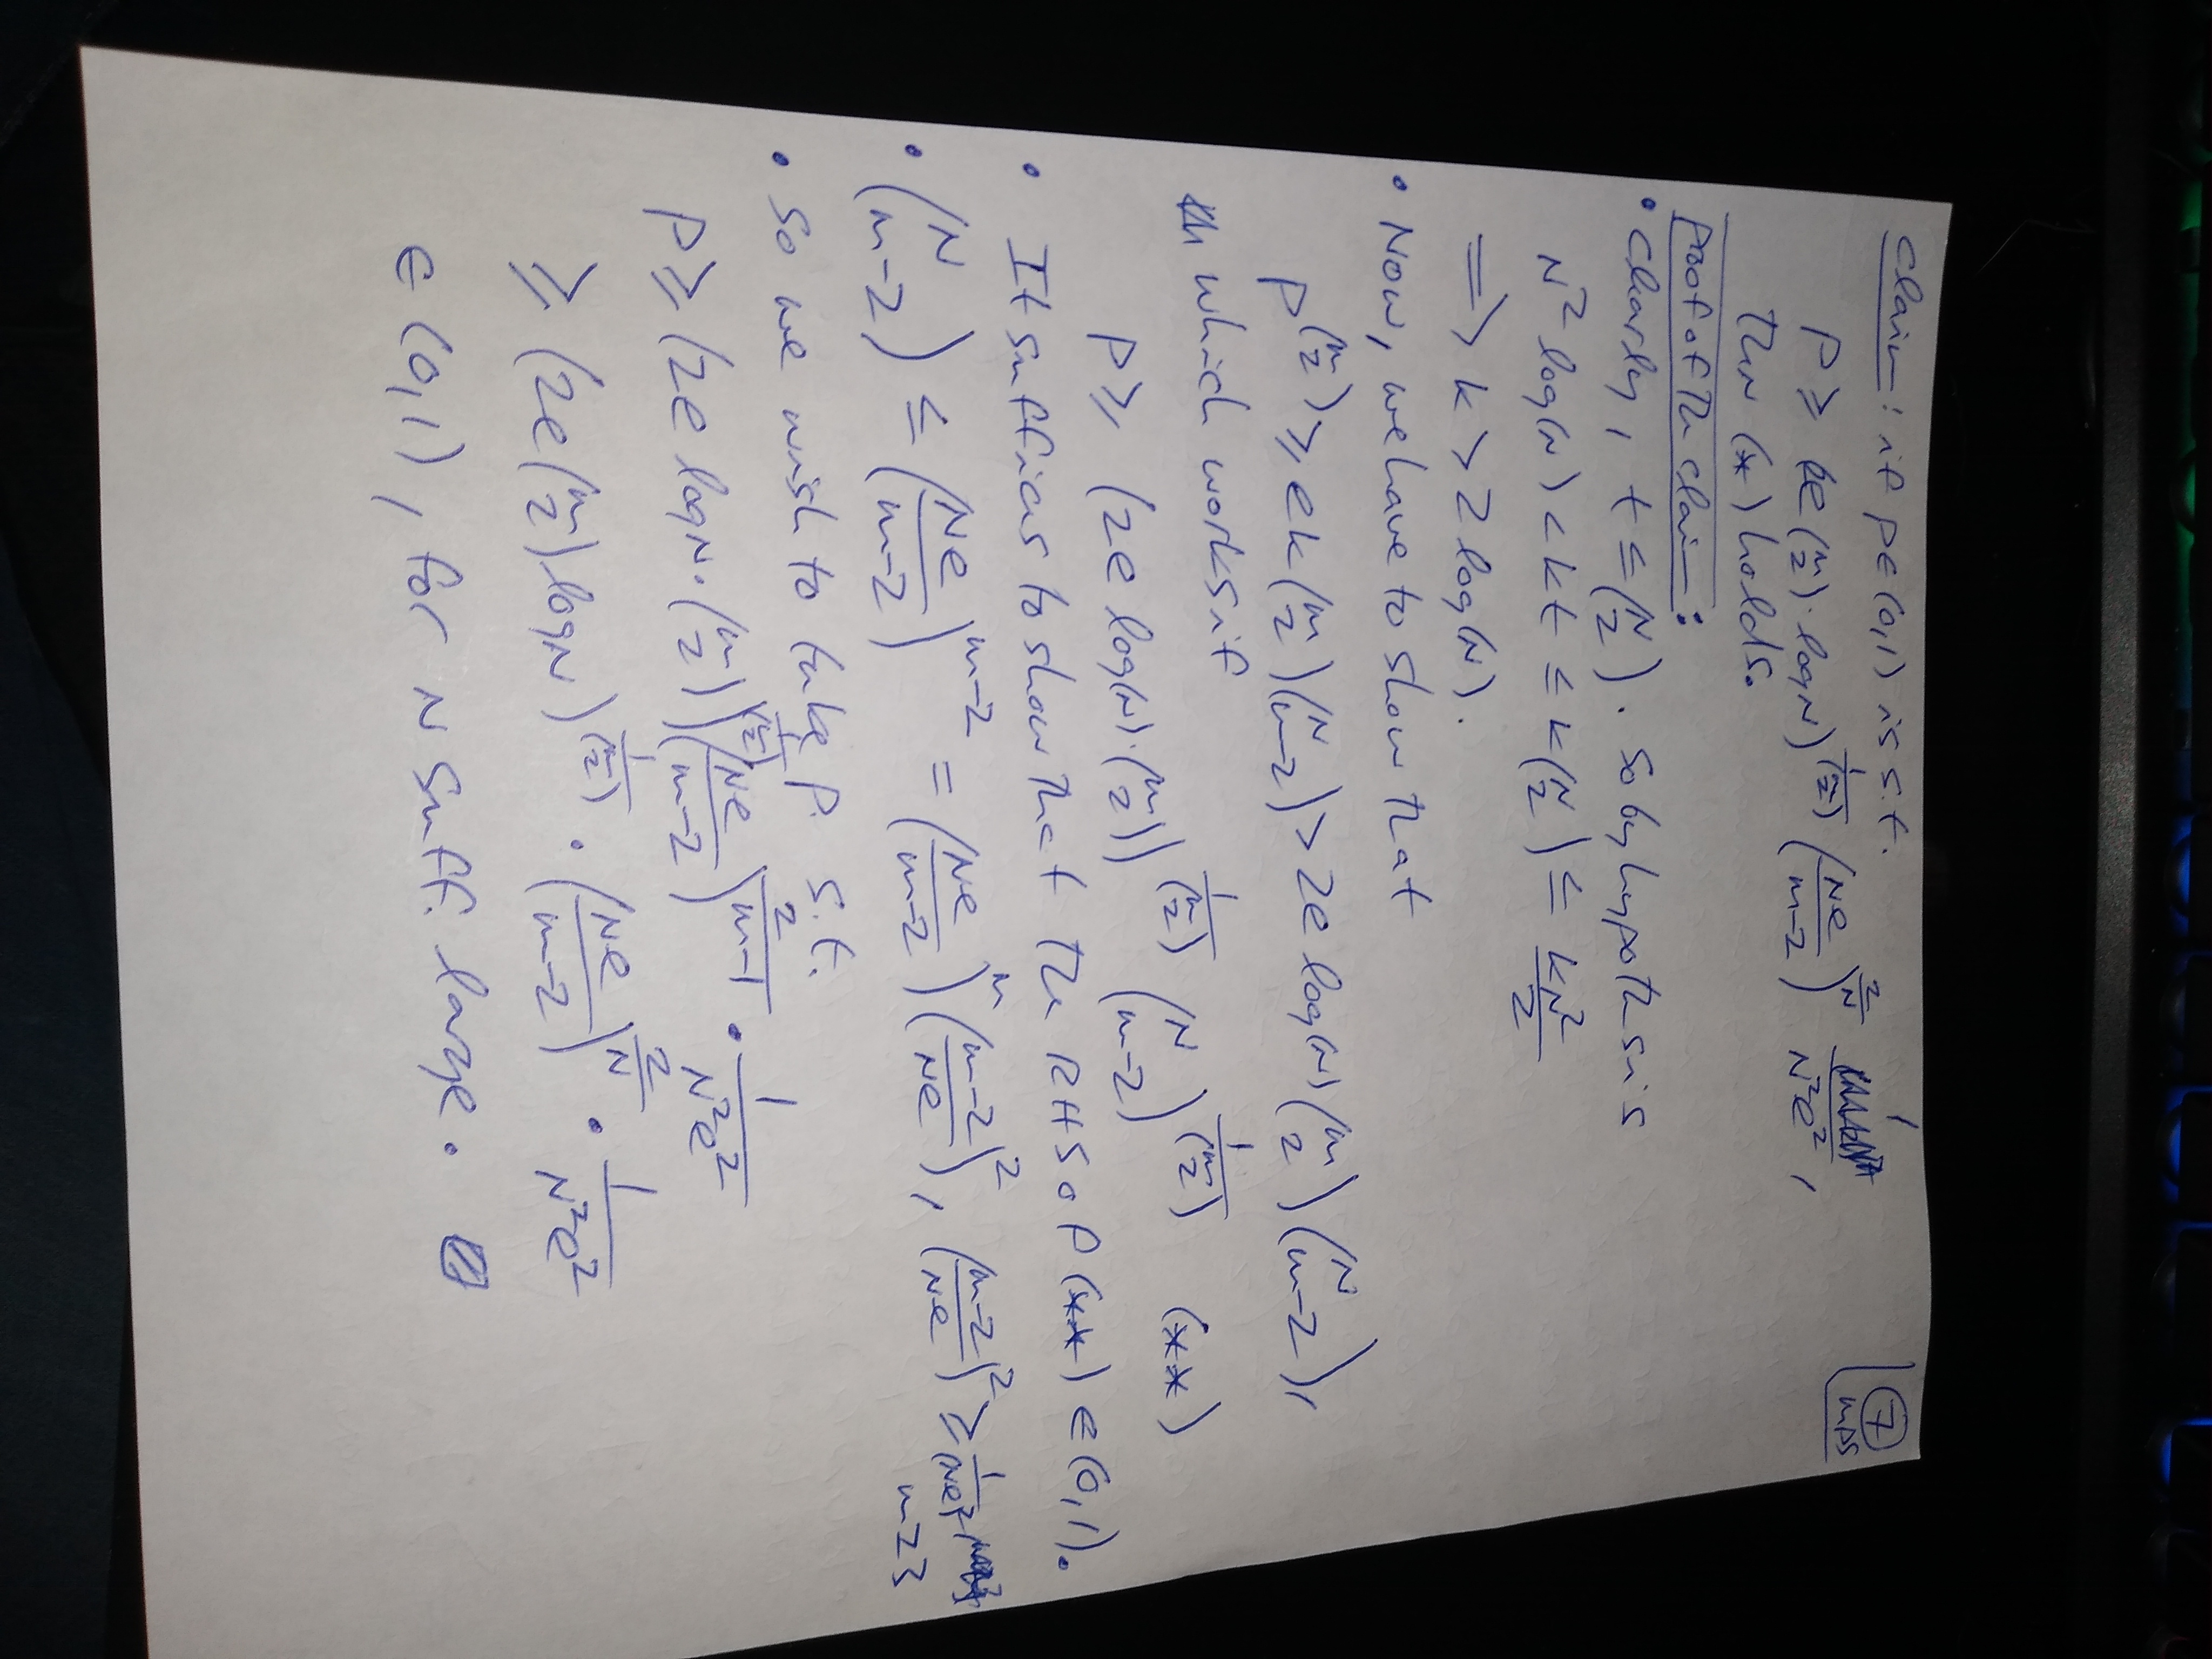 7
MDS
Claim: if p∈(0,1) is s.t.
P ≥ 2e(m 2)·log N)^(1/(m 2)) (Ne/(m-2))^(2/N) 1/(N²e²),
then (*) holds.
Proof of the claim:
• Clearly, t ≤ (N 2). So by hypothesis
N² log(N) < kt ≤ k(N 2) ≤ kN²/2
=> k > 2 log(N).
• Now, we have to show that
P^(m 2) ≥ ek(m 2)(N m-2) > 2e log(N)(m 2)(N m-2),
which works if
P ≥ (2e log(N)·(m 2))^(1/(m 2)) (N m-2)^(1/(m 2)) (**)
• It suffices to show that the RHS of (**) ∈ (0,1).
• (N m-2) ≤ (Ne/(m-2))^(m-2) = (Ne/(m-2))^m ((m-2)/Ne)², ((m-2)/Ne)² ≥ 1/(Ne)²,
m≥3
• So we wish to take P s.t.
P ≥ (2e log N·(m 2))^(1/(m 2)) (Ne/(m-2))^(2/(m-1)) · 1/(N²e²)
≥ (2e(m 2) log N)^(1/(m 2)) · (Ne/(m-2))^(2/N) · 1/(N²e²)
∈ (0,1), for N suff. large.